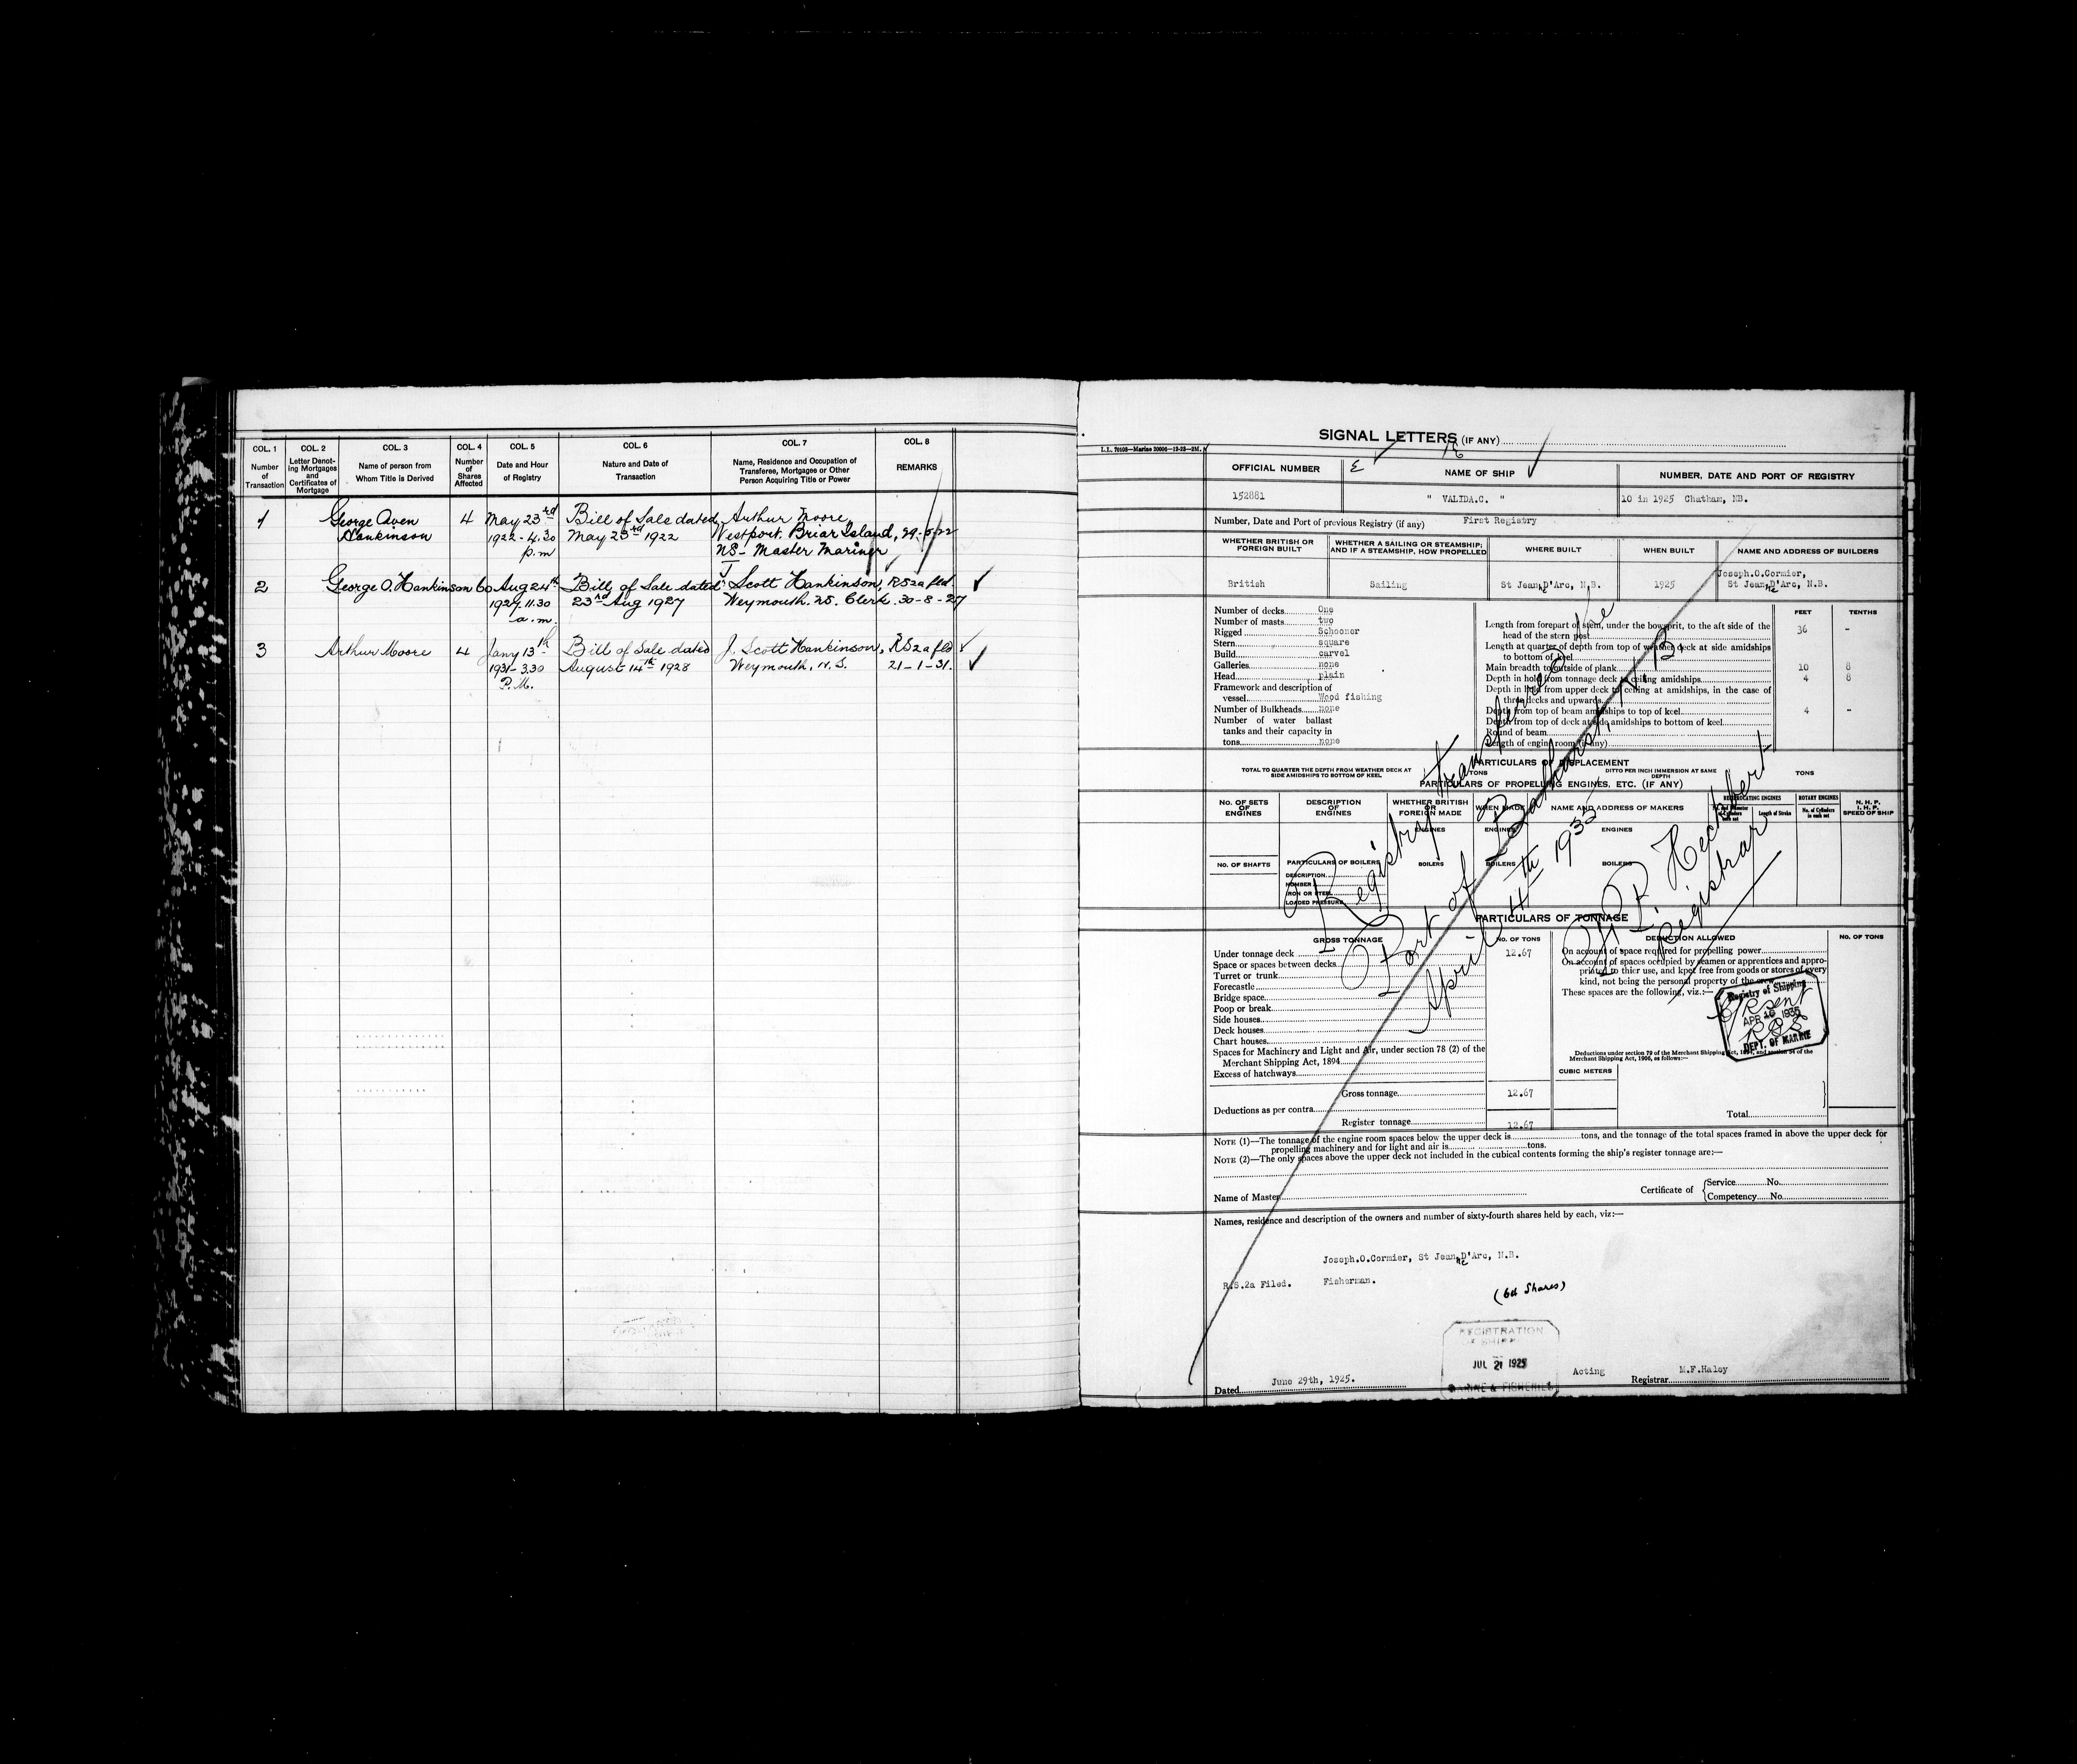 COL. 1 COL. 2 COL. 3 COL. 4 COL. 5 COL. 6 COL. 7 COL. 8
Number of Transaction
Letter Denoting Mortgages and Certificates of Mortgage
Name of person from Whom Title is Derived
Number of Shares Affected
Date and Hour of Registry
Nature and Date of Transaction
Name, Residence and Occupation of Transferee, Mortgagee or Other Person Acquiring Title or Power
REMARKS
1 George Owen 4 May 23rd Bill of Sale dated Arthur Moore,
Hankinson 1922 - 4.30 May 23rd 1922 Westport, Briar Island, 29-5-22
p.m NS - Master Mariner
2 George O. Hankinson 60 Aug 24th Bill of Sale dated J. Scott Hankinson, RS2a fld.
1927 11.30 23rd Aug 1927 Weymouth. NS. Clerk. 30-8-27
a.m.
3 Arthur Moore 4 Jany 13th Bill of Sale dated J. Scott Hankinson, RS2a fld
1931- 3.30 August 14th 1928 Weymouth, N.S. 21-1-31.
P.M.
SIGNAL LETTERS (IF ANY)
OFFICIAL NUMBER NAME OF SHIP NUMBER, DATE AND PORT OF REGISTRY
152881 " VALIDA.C. " 10 in 1925 Chatham, NB.
Number, Date and Port of previous Registry (if any) First Registry
WHETHER BRITISH OR FOREIGN BUILT
WHETHER A SAILING OR STEAMSHIP; AND IF A STEAMSHIP, HOW PROPELLED
WHERE BUILT
WHEN BUILT
NAME AND ADDRESS OF BUILDERS
Joseph.O.Cormier,
British Sailing St Jean D'Arc, N.B. 1925 St Jean D'Arc, N.B.
FEET TENTHS
Number of decks One
Number of masts two
Rigged Schooner
Stern square
Build carvel
Galleries none
Head plain
Framework and description of
vessel Wood fishing
Number of Bulkheads none
Number of water ballast
tanks and their capacity in
tons none
Length from forepart of stem, under the bowsprit, to the aft side of the
head of the stern post 36 -
Length at quarter of depth from top of weather deck at side amidships
to bottom of keel
Main breadth to outside of plank 10 8
Depth in hold from tonnage deck to ceiling amidships 4 8
Depth in hold from upper deck to ceiling at amidships, in the case of
three decks and upwards
Depth from top of beam amidships to top of keel 4 -
Depth from top of deck at side amidships to bottom of keel
Round of beam
Length of engine room (if any)
PARTICULARS OF DISPLACEMENT
TOTAL TO QUARTER THE DEPTH FROM WEATHER DECK AT SIDE AMIDSHIPS TO BOTTOM OF KEEL TONS
DITTO PER INCH IMMERSION AT SAME DEPTH TONS
PARTICULARS OF PROPELLING ENGINES, ETC. (IF ANY)
NO. OF SETS OF ENGINES
DESCRIPTION OF ENGINES
WHETHER BRITISH OR FOREIGN MADE
WHEN MADE
NAME AND ADDRESS OF MAKERS
RECIPROCATING ENGINES
Length of Stroke
ROTARY ENGINES
No. of Cylinders in each set
N. H. P.
I. H. P.
SPEED OF SHIP
ENGINES ENGINES ENGINES
NO. OF SHAFTS
PARTICULARS OF BOILERS BOILERS BOILERS BOILERS
DESCRIPTION
NUMBER
IRON OR STEEL
LOADED PRESSURE
Registry transferred
Port of Bathurst, N.B.
April 4th 1935
Heckbert
Registrar
PARTICULARS OF TONNAGE
GROSS TONNAGE NO. OF TONS DEDUCTION ALLOWED NO. OF TONS
Under tonnage deck 12.67
Space or spaces between decks
Turret or trunk
Forecastle
Bridge space
Poop or break
Side houses
Deck houses
Chart houses
Spaces for Machinery and Light and Air, under section 78 (2) of the
Merchant Shipping Act, 1894
Excess of hatchways
Gross tonnage 12.67
Deductions as per contra
Register tonnage 12.67
On account of space required for propelling power
On account of spaces occupied by seamen or apprentices and appro-
priated to thier use, and kpet free from goods or stores of every
kind, not being the personal property of the crew
These spaces are the following, viz.:—
Registry of Shipping
APR 16 1935
DEPT. OF MARINE
Deductions under section 79 of the Merchant Shipping Act, 1894, and section 54 of the
Merchant Shipping Act, 1906, as follows:—
CUBIC METERS
Total
NOTE (1)—The tonnage of the engine room spaces below the upper deck is tons, and the tonnage of the total spaces framed in above the upper deck for
propelling machinery and for light and air is tons.
NOTE (2)—The only spaces above the upper deck not included in the cubical contents forming the ship's register tonnage are:—
Name of Master
Certificate of Service No.
Competency No.
Names, residence and description of the owners and number of sixty-fourth shares held by each, viz:—
Joseph.O.Cormier, St Jean D'Arc, N.B.
R.S.2a Filed. Fisherman.
(64 Shares)
REGISTRATION
OF SHIPPING
JUL 21 1925
MARINE & FISHERIES
Dated June 29th, 1925.
Acting Registrar M.F.Haley